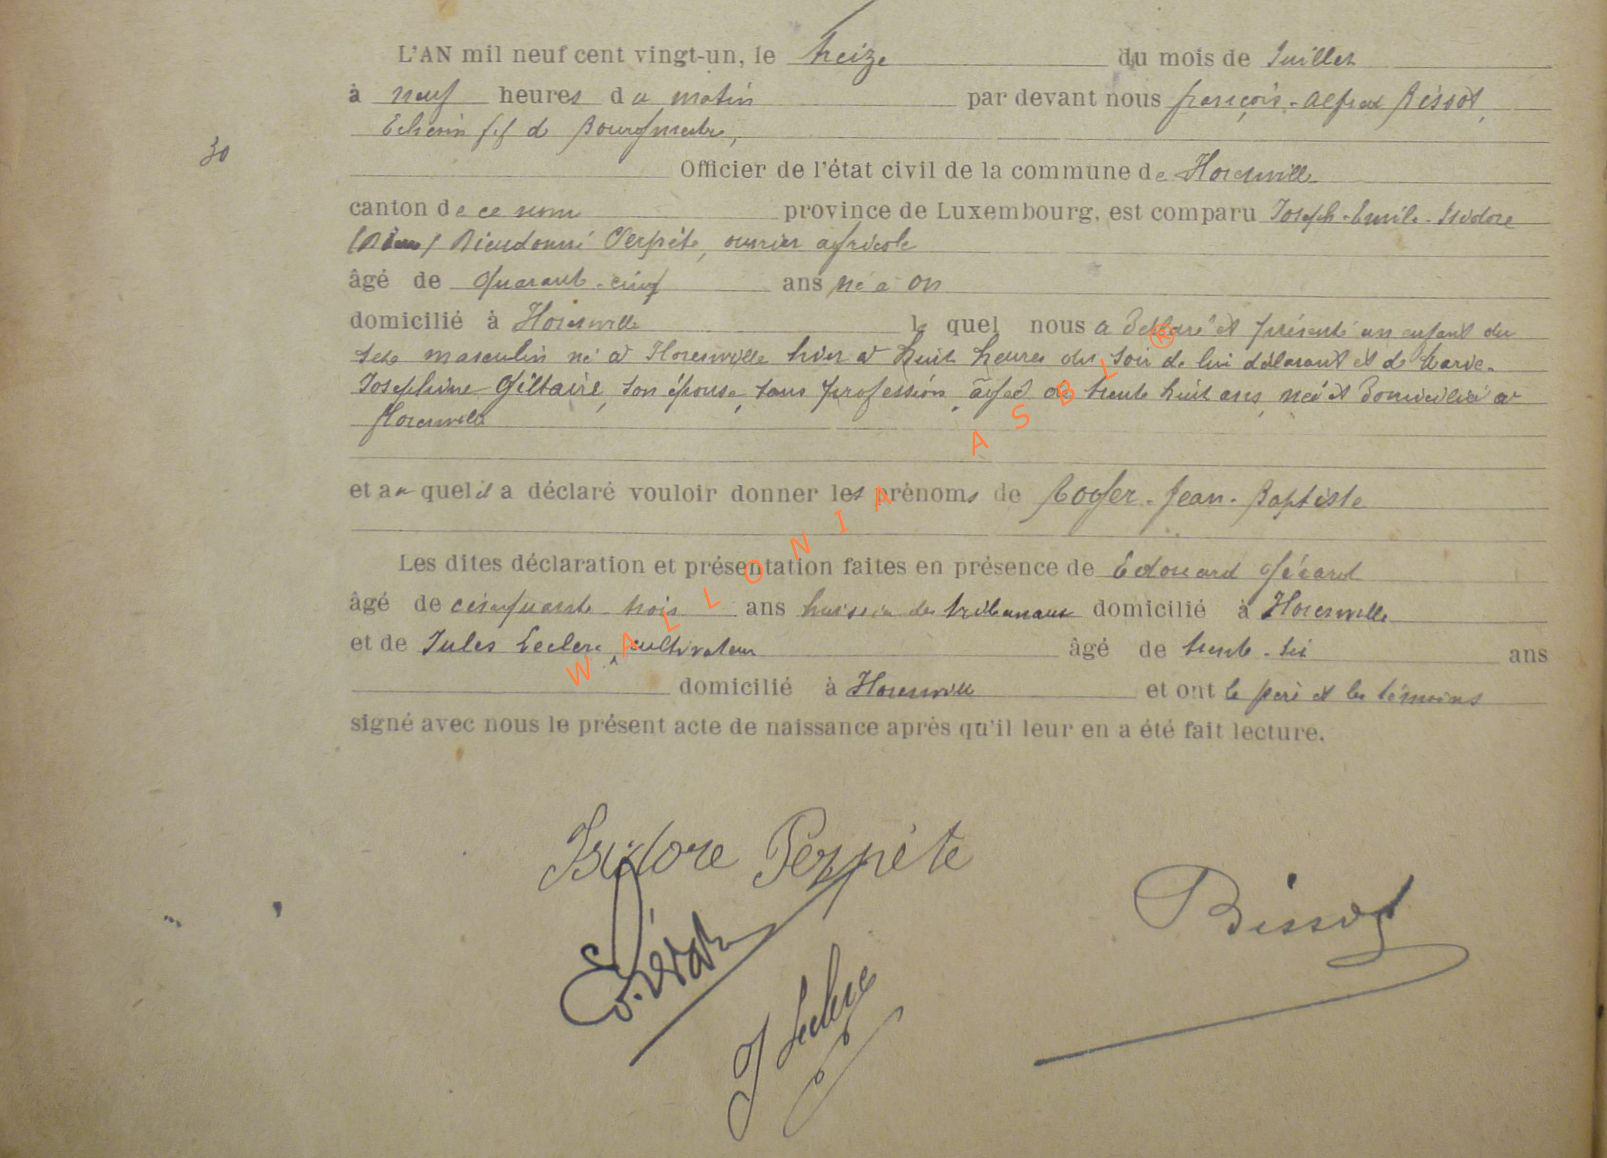 L'AN mil neuf cent vingt-un, le treize du mois de Juillet
à neuf heures du matin par devant nous françois-Alfred Bissot,
Echevin ff de Bourgmestre,
30
Officier de l'état civil de la commune de Hotton
canton de ce nom province de Luxembourg, est comparu Joseph-Emile-Isidore
Dieudonné Perpète, ouvrier agricole
âgé de quarante-cinq ans né à On
domicilié à
lequel nous a déclaré et présenté un enfant du
sexe masculin né à hier à huit heures du soir de lui déclarant et de Marie-
Josephine Giltaire, son épouse, sans profession, âgée de trente huit ans, née et domiciliée à
et auquel il a déclaré vouloir donner les prénoms de Roger-Jean-Baptiste
Les dites déclaration et présentation faites en présence de Edouard Gérard
âgé de cinquante trois ans huissier des tribunaux domicilié à
et de Jules Leclere, cultivateur âgé de trente-six ans
domicilié à et ont le père et les témoins
signé avec nous le présent acte de naissance après qu'il leur en a été fait lecture.
WALLONIA ASBL ®
Isidore Perpète
Bissot
E. Gérard
J Leclere